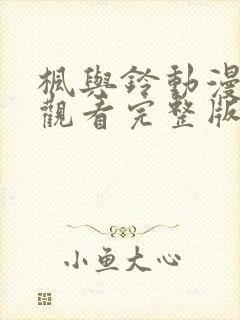 楓與鈴動漫
觀看完整版
小鱼大心